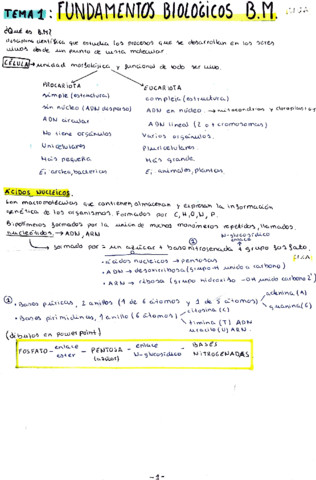 TEMA 1: FUNDAMENTOS BIOLÓGICOS B.M.
¿Qué es B.M?
disciplina científica que estudia los procesos que se desarrollan en los seres
vivos desde un punto de vista molecular.
CÉLULA → unidad morfológica y funcional de todo ser vivo.
PROCARIOTA EUCARIOTA
simple (estructura) compleja (estructura)
sin núcleo (ADN disperso) ADN en núcleo → mitocondrias y cloroplastos
ADN circular ADN lineal (2 o + cromosomas)
No tiene orgánulos Varios orgánulos.
Unicelulares Pluricelulares.
Más pequeña Más grande
Ej: archea, bacterias Ej: animales, plantas.
ÁCIDOS NUCLEICOS.
Son macromoléculas que contienen, almacenan y expresan la información
genética de los organismos. Formados por C, H, O, N, P.
Biopolímeros formados por la unión de muchos monómeros repetidos, llamados
nucleótidos. → ADN, ARN
N-glucosídico
enlace
formado por = un azúcar + base nitrogenada + grupo fosfato.
• ácidos nucleicos → pentosas
• ADN → desoxirribosa (grupo H unido a carbono)
• ARN → ribosa (grupo hidroxilo -OH unido carbono 2')
① • Bases púricas, 2 anillos (1 de 6 átomos y 1 de 5 átomos) adenina (A)
guanina (G)
• Bases pirimidínicas, 1 anillo (6 átomos) citosina (C)
timina (T) ADN
uracilo (U) ARN.
(dibujos en powerpoint)
FOSFATO - enlace ester - PENTOSA - enlace N-glucosídico - BASES NITROGENADAS
-1-